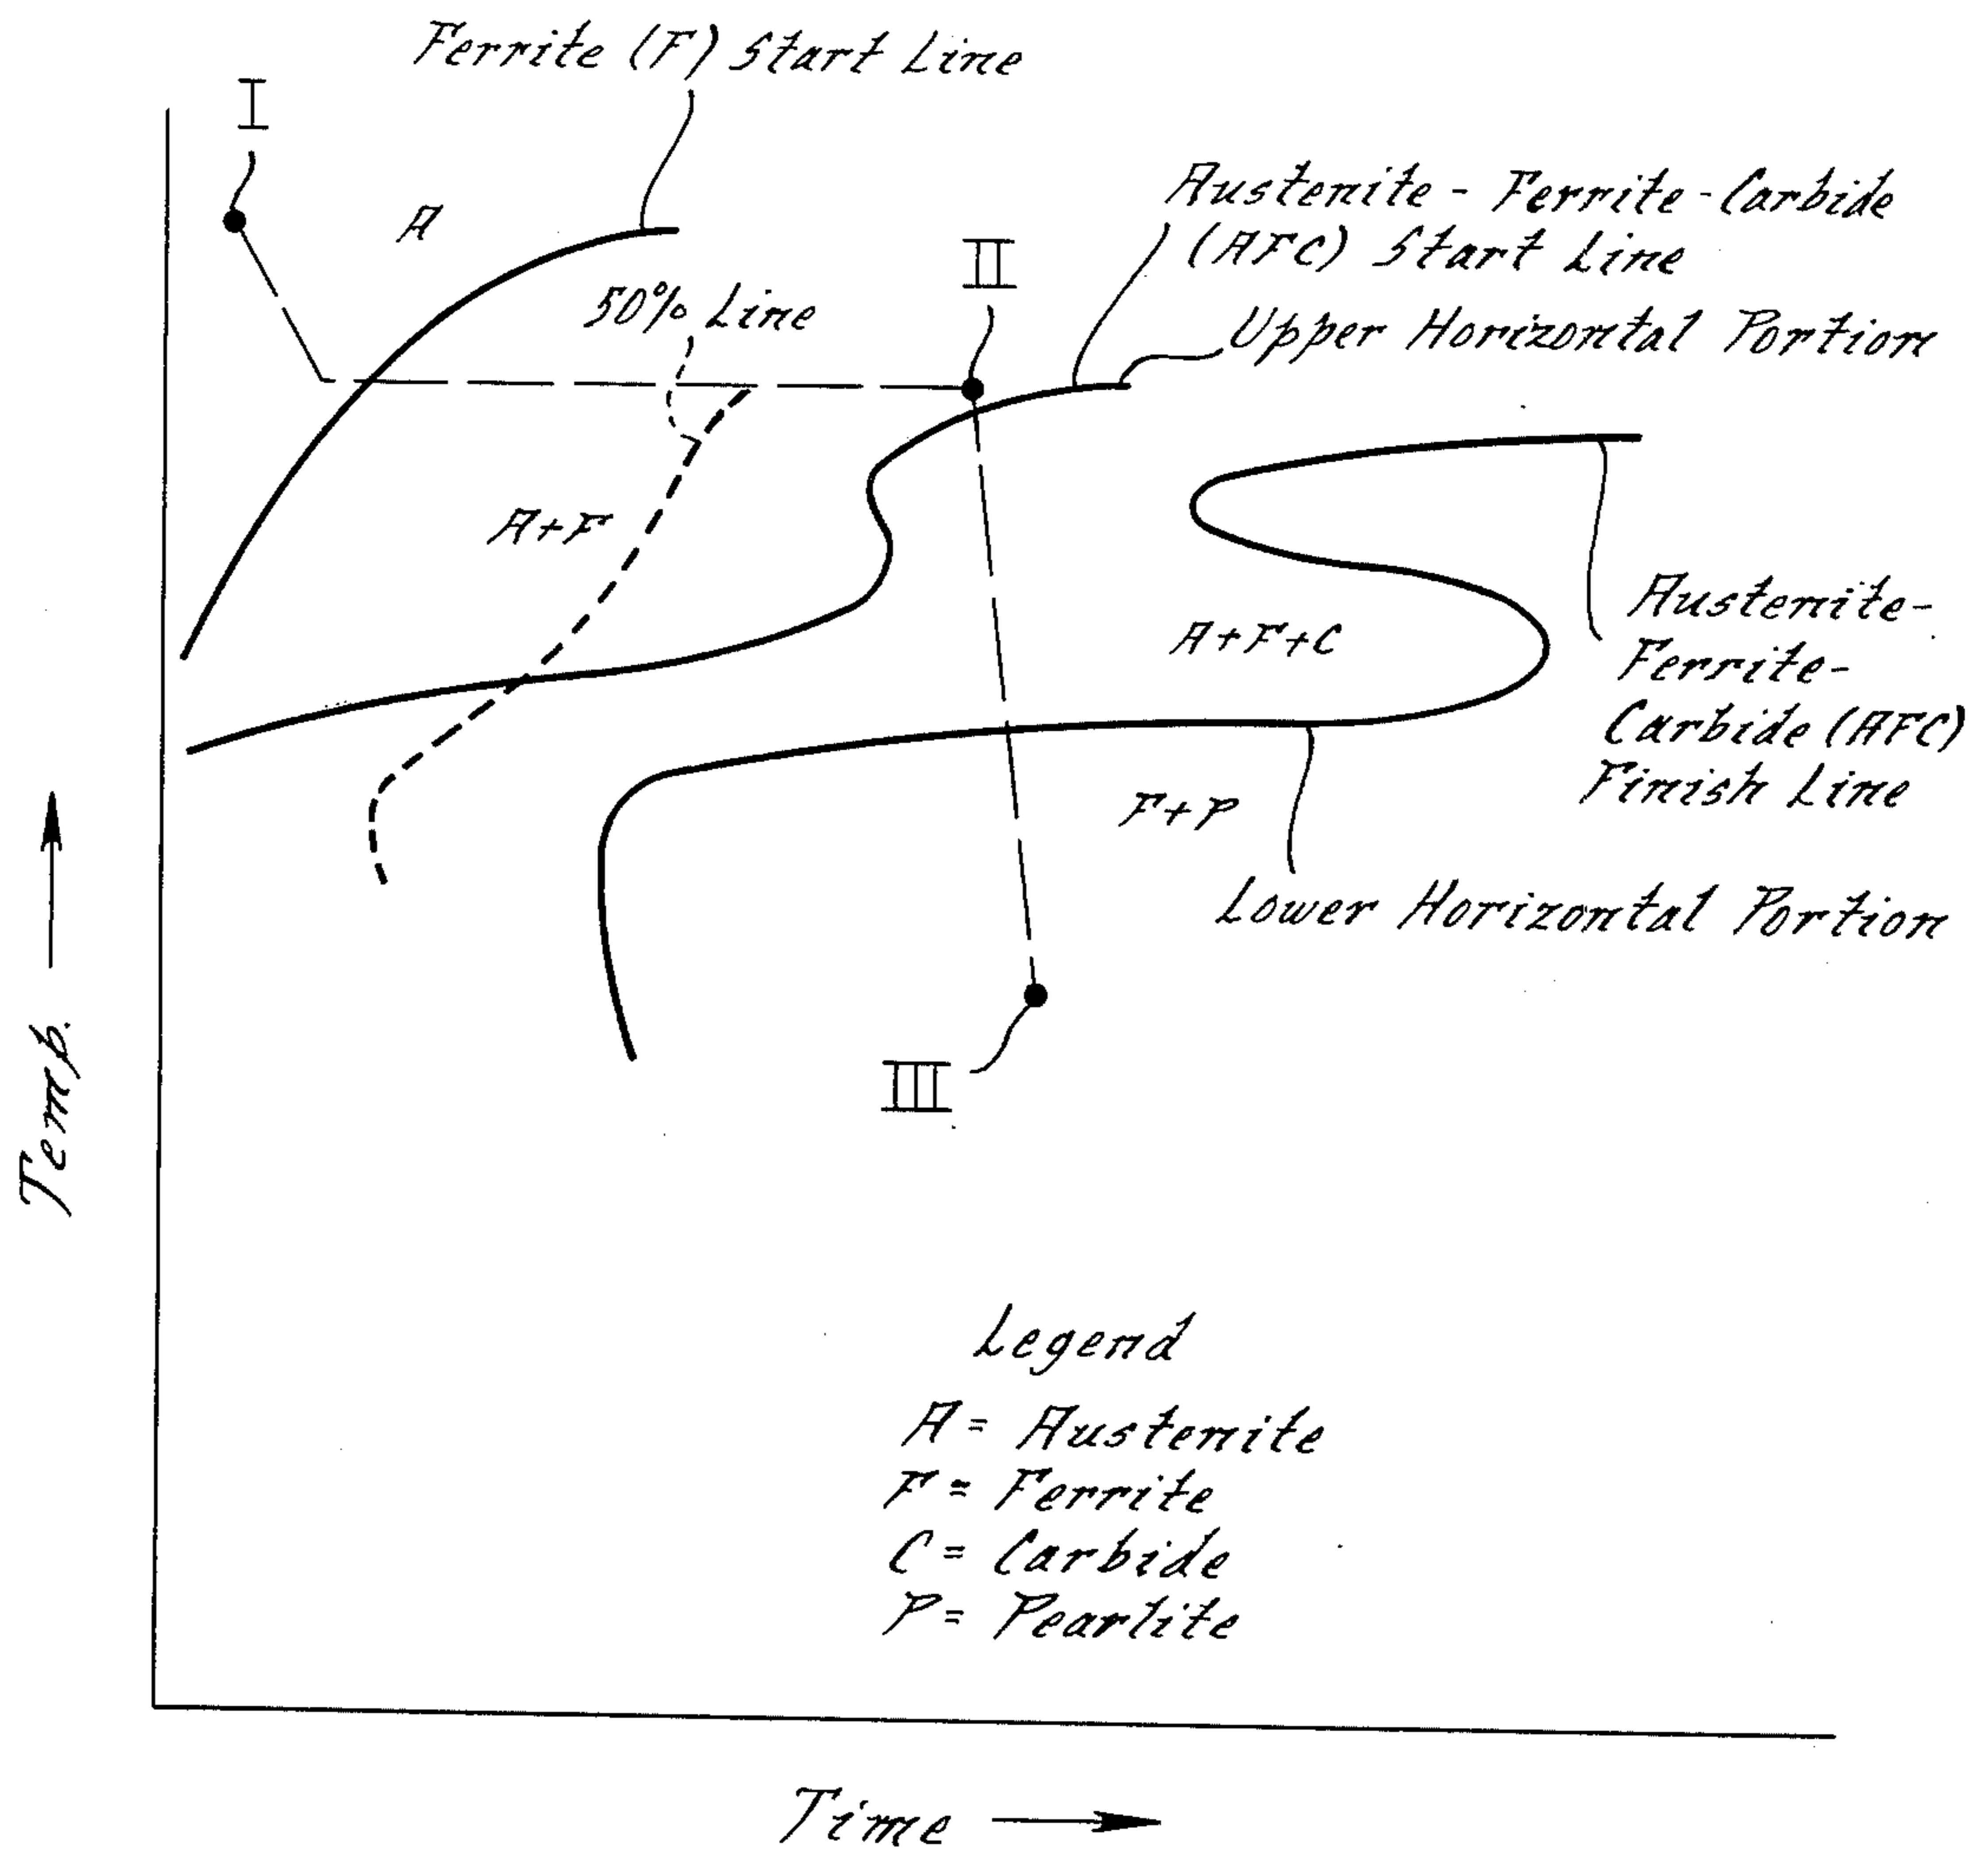 Ferrite (F) Start Line
I
A
Austenite - Ferrite - Carbide
(AFC) Start Line
II
50% Line
Upper Horizontal Portion
A+F
Austenite-
Ferrite-
Carbide (AFC)
Finish Line
A+F+C
F+P
Lower Horizontal Portion
III
Temp.
Legend
A = Austenite
F = Ferrite
C = Carbide
P = Pearlite
Time